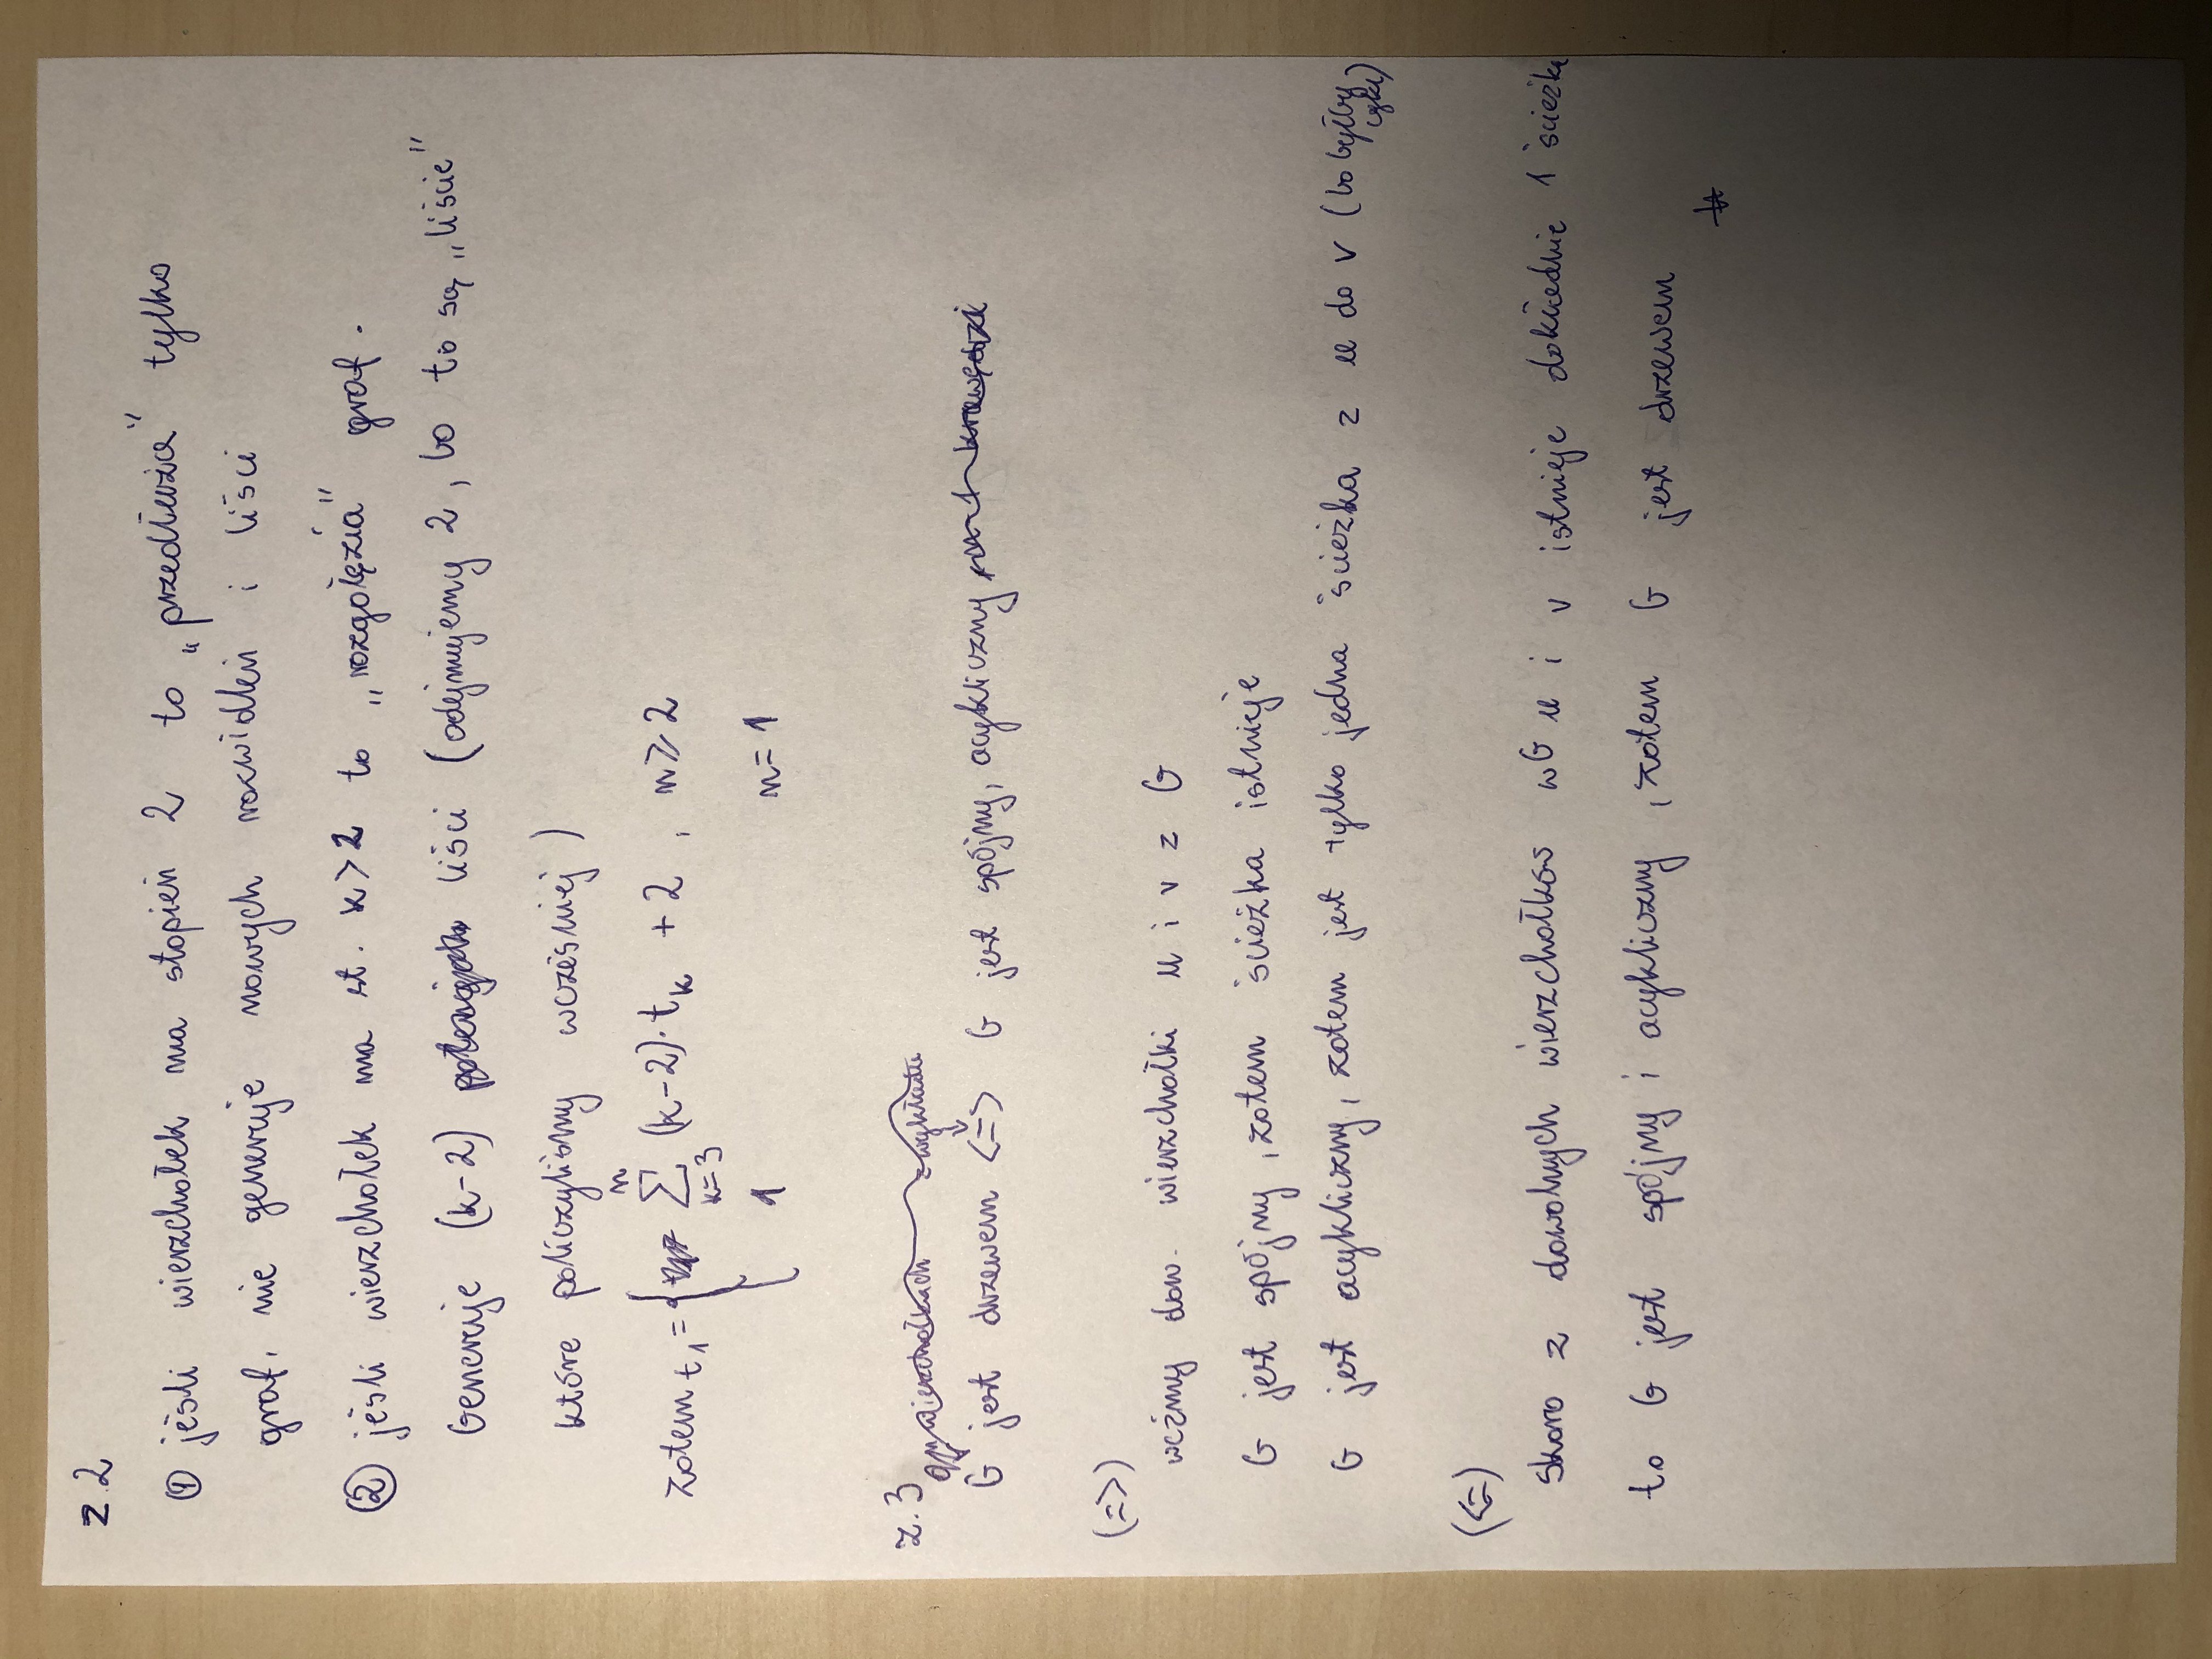 z.2
① jeśli wierzchołek ma stopień 2 to „przedłuża" tylko
graf, nie generuje nowych rozwidleń i liści
② jeśli wierzchołek ma st. k>2 to „rozgałęzia" graf.
Generuje (k-2) liści (odejmujemy 2, bo to są „liście"
które policzyliśmy wcześniej)
zatem t₁ = { n ∑ k=3 (k-2)·tₖ + 2 , n≥2
1 n=1
z.3
wierzchołkach z wykładu
G jest drzewem <=> G jest spójny, acykliczny, n-1 krawędzi
(=>)
weźmy dow. wierzchołki u i v z G
G jest spójny, zatem ścieżka istnieje
G jest acykliczny, zatem jest tylko jedna ścieżka z u do v (bo byłby
cykl)
(<=)
Skoro z dowolnych wierzchołków w G u i v istnieje dokładnie 1 ścieżka
to G jest spójny i acykliczny, zatem G jest drzewem